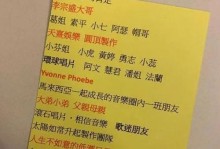 李宗盛大哥
葛姐 素平 小七 阿瑟 帽哥
天籟娛樂 圓頂製作
小芬姐 小虎 黃婷 勇志 小蕊
環球唱片 阿文 慧君 潘姐 法蘭
Yvonne Phoebe
馬來西亞一起成長的音樂圈內一班朋友
大弟小弟 父親母親
滾石唱片，相信音樂 歌迷朋友
太陽如常升起製作團隊
人生不如意的低潮